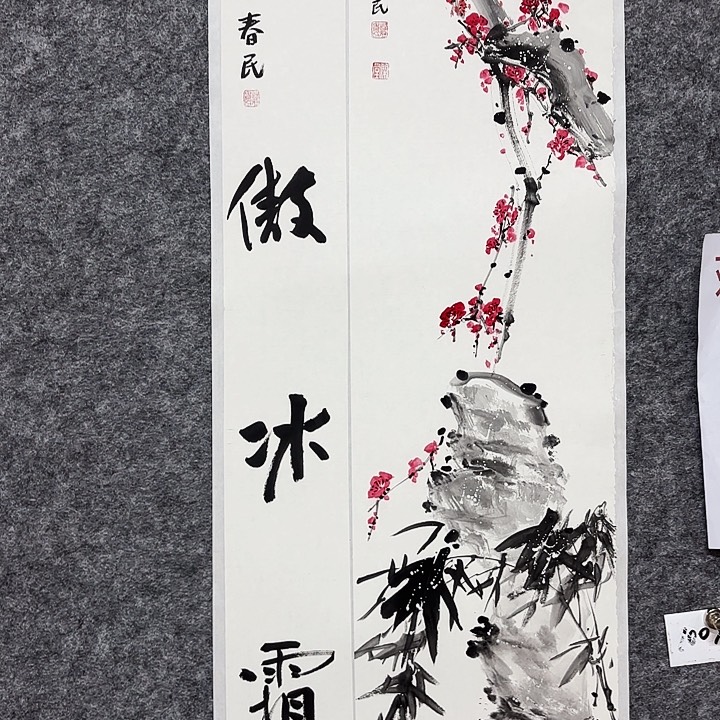 春民
民
傲
冰
霜